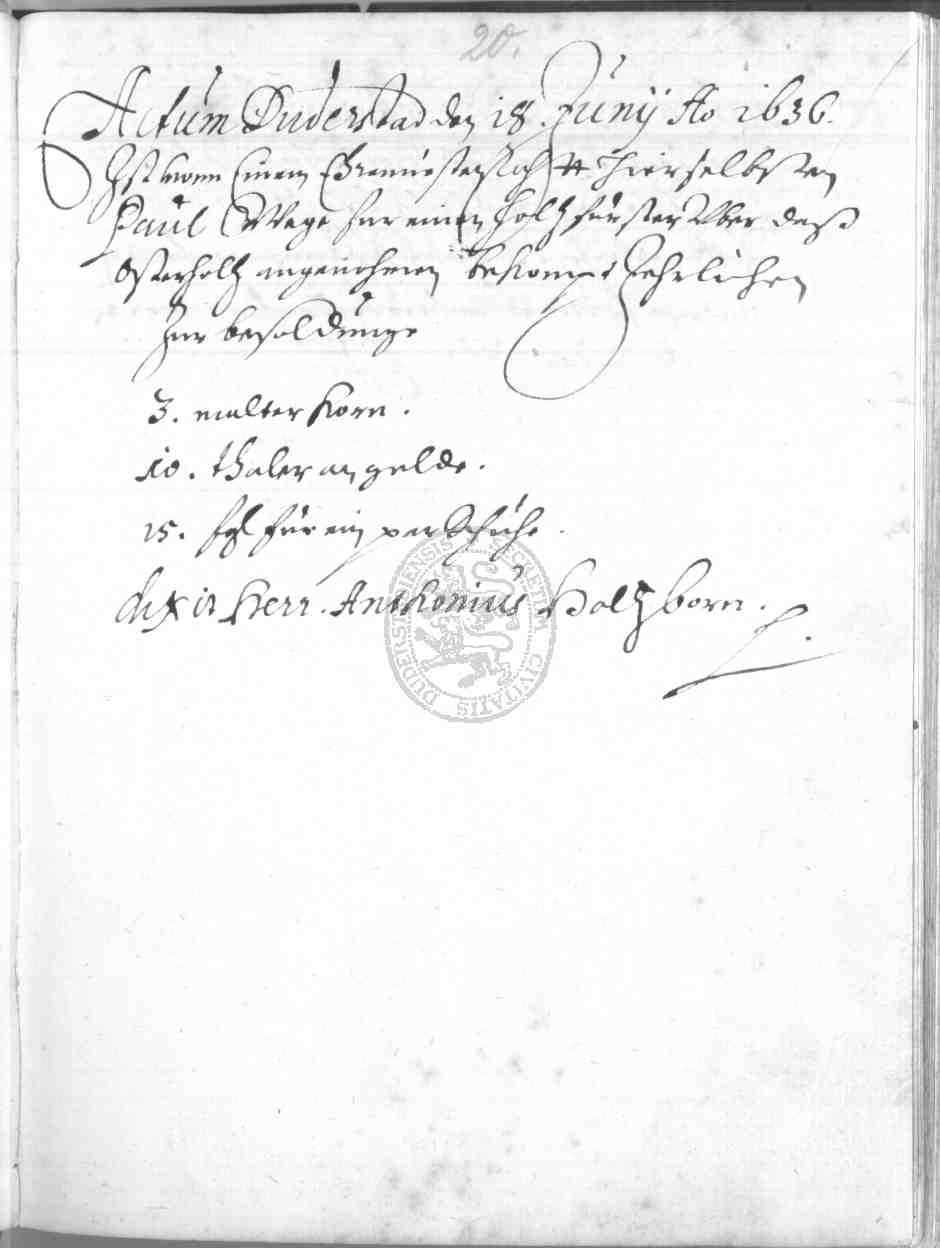 20.
Actum Duderstad den 18. Junij Ao 1636.
Ist vonn Einem Ehrnuesten Hierselbsten
Paul Wage fur einen holtzfürster Vber daß
Osterholtz angenohmen bekompt Jehrlichen
zur besoldunge
3. malter korn.
10. thaler an gelde.
15. fl für ein par Schuhe.
dixit Herr. Anthonius Holtzborn.
SECRETUM CIVITATIS DUDERSTADIENSIS